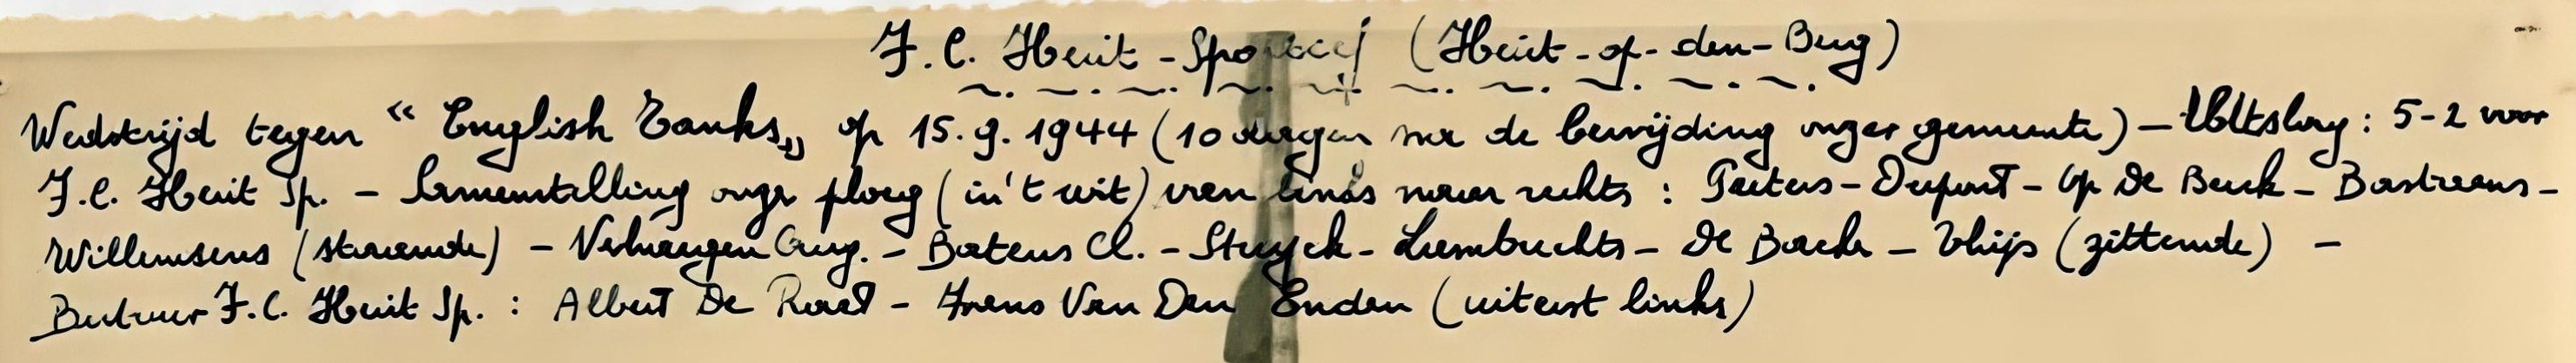 F.C. Heist - Sportief (Heist-op-den-Berg)
Wedstrijd tegen “English Tanks„ op 15.9.1944 (10 dagen na de bevrijding onzer gemeente) - Uitslag: 5-2 voor
F.C. Heist Sp. - Samenstelling onze ploeg (in 't wit) van links naar rechts: Peeters - Dupont - Op De Beeck - Bastiaens -
Willemsens (staande) - Verhaegen Aug. - Batens Cl. - Struyck - Lembrechts - De Backer - Thijs (zittende) -
Bestuur F.C. Heist Sp.: Albert De Raet - Frans Van Den Enden (uiterst links)